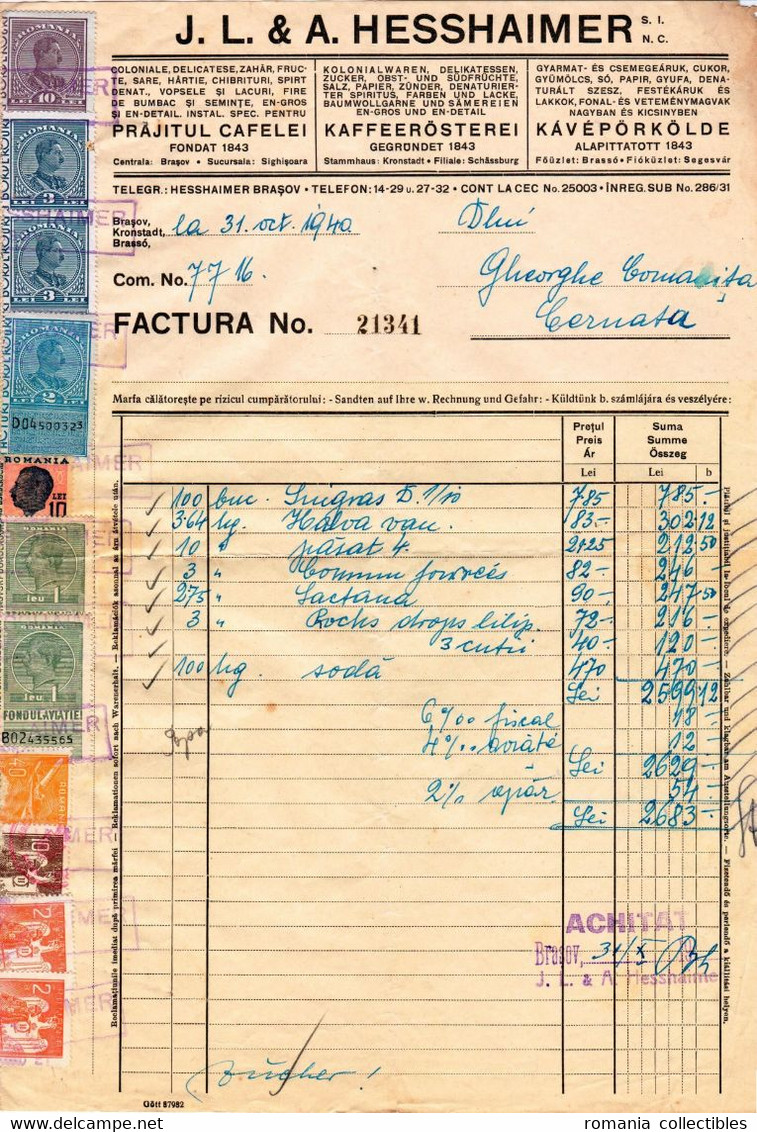 J. L. & A. HESSHAIMER S. I. N. C.
COLONIALE, DELICATESE, ZAHĂR, FRUC-
TE, SARE, HÂRTIE, CHIBRITURI, SPIRT
DENAT., VOPSELE ȘI LACURI, FIRE
DE BUMBAC ȘI SEMINȚE, EN-GROS
ȘI EN-DETAIL. INSTAL. SPEC. PENTRU
PRĂJITUL CAFELEI
FONDAT 1843
Centrala: Brașov • Sucursala: Sighișoara
KOLONIALWAREN, DELIKATESSEN,
ZUCKER, OBST- UND SÜDFRÜCHTE,
SALZ, PAPIER, ZÜNDER, DENATURIER-
TER SPIRITUS, FARBEN UND LACKE,
BAUMWOLLGARNE UND SÄMEREIEN
EN-GROS UND EN-DETAIL
KAFFEERÖSTEREI
GEGRONDET 1843
Stammhaus: Kronstadt • Filiale: Schässburg
GYARMAT- ÉS CSEMEGEÁRUK, CUKOR,
GYÜMÖLCS, SÓ, PAPIR, GYUFA, DENA-
TURÁLT SZESZ, FESTÉKÁRUK ÉS
LAKKOK, FONAL- ÉS VETEMÉNYMAGVAK
NAGYBAN ÉS KICSINYBEN
KÁVÉPÖRKÖLDE
ALAPITTATOTT 1843
Főüzlet: Brassó • Fióküzlet: Segesvár
TELEGR.: HESSHAIMER BRAȘOV • TELEFON: 14-29 u. 27-32 • CONT LA CEC No. 25003 • ÎNREG. SUB No. 286/31
Brașov,
Kronstadt, la 31. oct. 1940
Brassó,
Dlui
Com. No. 7716.
Gheorghe Comanița
Cernata
FACTURA No. 21341
Marfa călătorește pe rizicul cumpărătorului: - Sandten auf Ihre w. Rechnung und Gefahr: - Küldtünk b. számlájára és veszélyére:
Prețul Preis Ár Lei
Suma Summe Összeg Lei b
100 buc. D. 1/10 785 785.-
3·64 kg. Halva van. 83.- 302 12
10 " 4. 21·25 212 50
3 " 82.- 246.-
2·75 " Lactana 90.- 247·50
3 " Rocks drops 72.- 216.-
3 cutii 40.- 120.-
100 kg. sodă 470 470.-
Lei 2599 12
6‰ fiscal 18.-
4‰ 12.-
Lei 2629.-
2% apăr. 54.-
Lei 2683.-
ACHITAT
Brașov, 31/X
J. L. & A. Hesshaimer
Zucker!
Reclamațiunile imediat după primirea mărfei - Reklamationen sofort nach Warenerhalt. - Reklamációk azonnal az áru átvétele után.
Gött 87982
ROMANIA
10 LEI
3 LEI
3 LEI
ROMANIA
2 LEI
D04500323
ROMANIA
LEI 10
leu 1
leu 1
FONDUL AVIAȚIEI
B02435565
40
10
2
2
romania collectibles